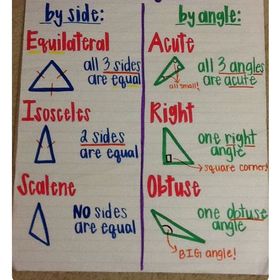 by side:
Equilateral
all 3 sides
are equal
Isosceles
2 sides
are equal
Scalene
NO sides
are equal
by angle:
Acute
all 3 angles
are acute
all small!
Right
one right
angle
square corner!
Obtuse
one obtuse
angle
BIG angle!